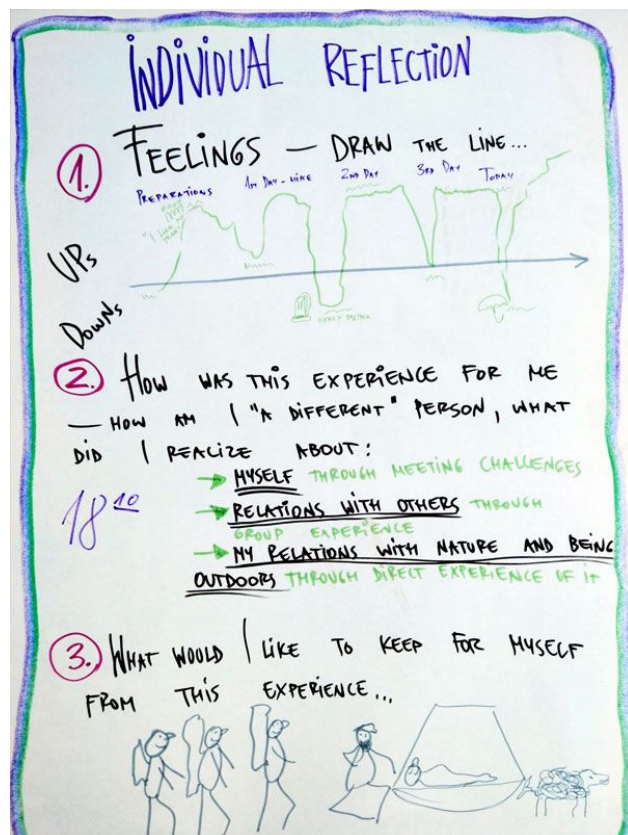 INDIVIDUAL REFLECTION
1. FEELINGS — DRAW THE LINE...
PREPARATIONS 1ST DAY - HIKE 2ND DAY 3RD DAY TODAY
UPs
DOWNs
2. HOW WAS THIS EXPERIENCE FOR ME
— HOW AM I "A DIFFERENT" PERSON, WHAT
DID I REALIZE ABOUT:
→ MYSELF THROUGH MEETING CHALLENGES
18 10
→ RELATIONS WITH OTHERS THROUGH
GROUP EXPERIENCE
→ MY RELATIONS WITH NATURE AND BEING
OUTDOORS THROUGH DIRECT EXPERIENCE OF IT
3. WHAT WOULD I LIKE TO KEEP FOR MYSELF
FROM THIS EXPERIENCE...